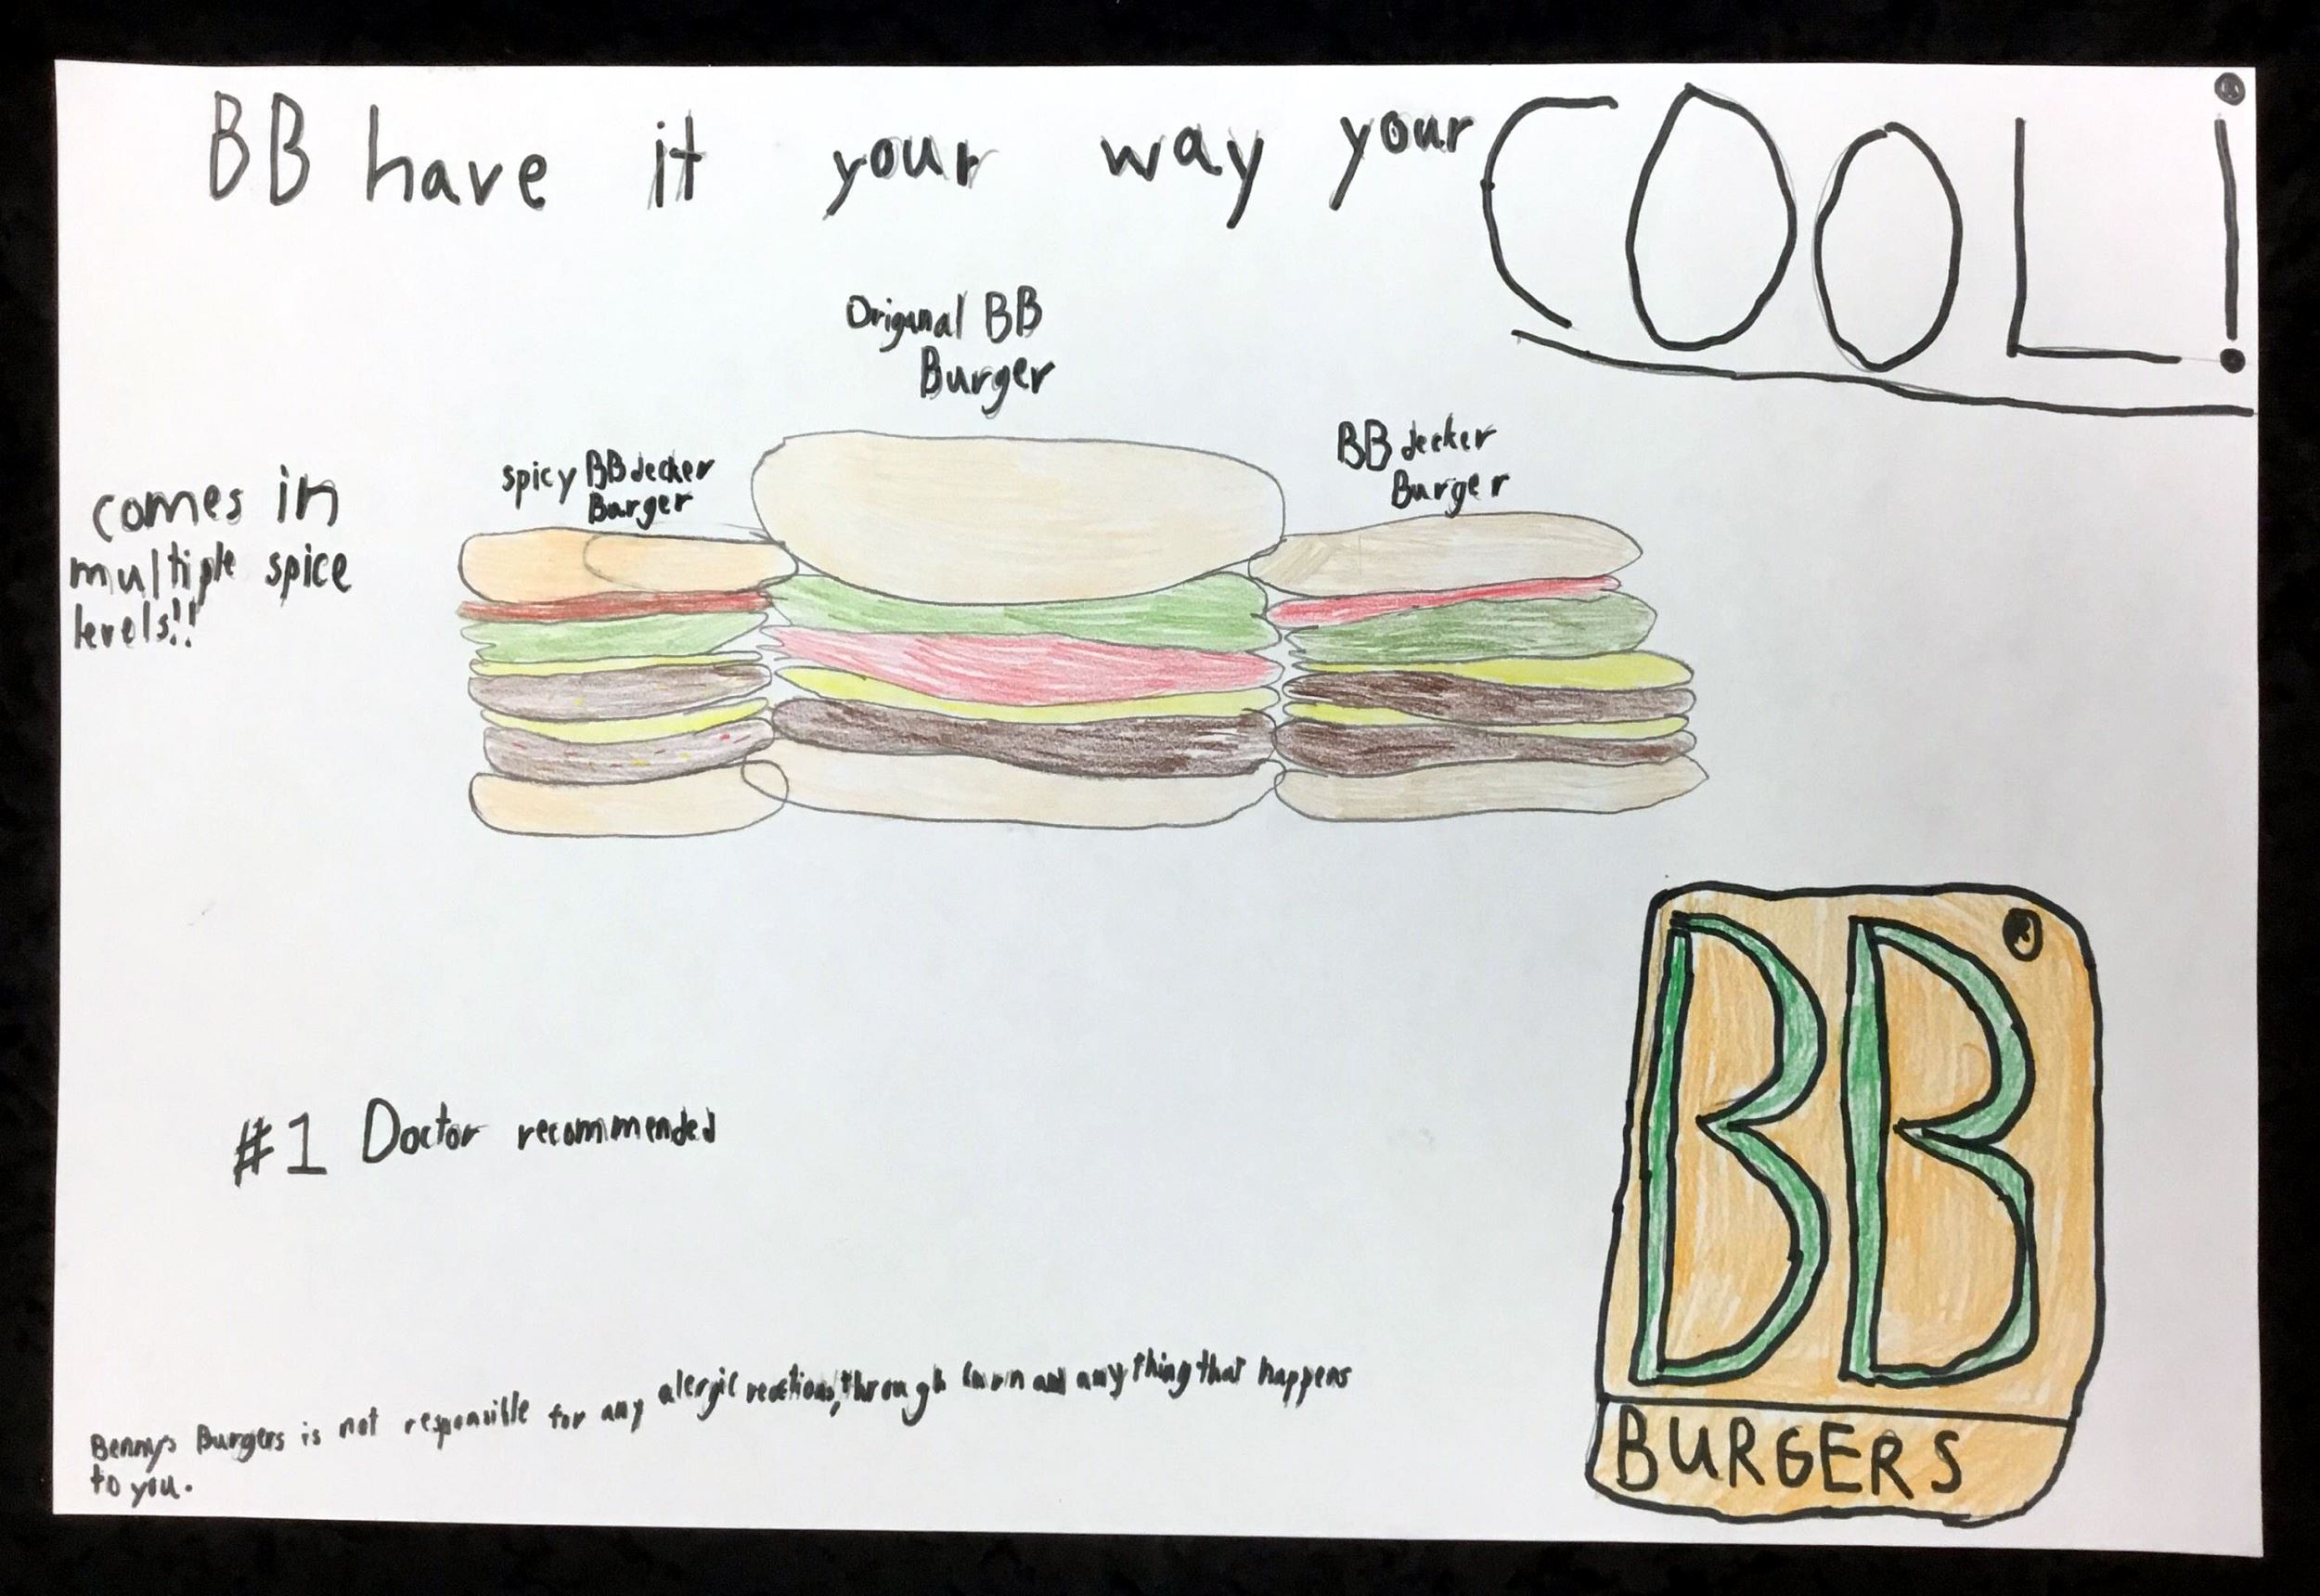 BB have it your way your COOL!
Origanal BB
Burger
spicy BB decker
Burger
BB decker
Burger
comes in
multiple spice
levels!!
#1 Doctor recommended
Bennys Burgers is not responsible for any alergic reactions, through burn and any thing that happens
to you.
R
BB
BURGERS